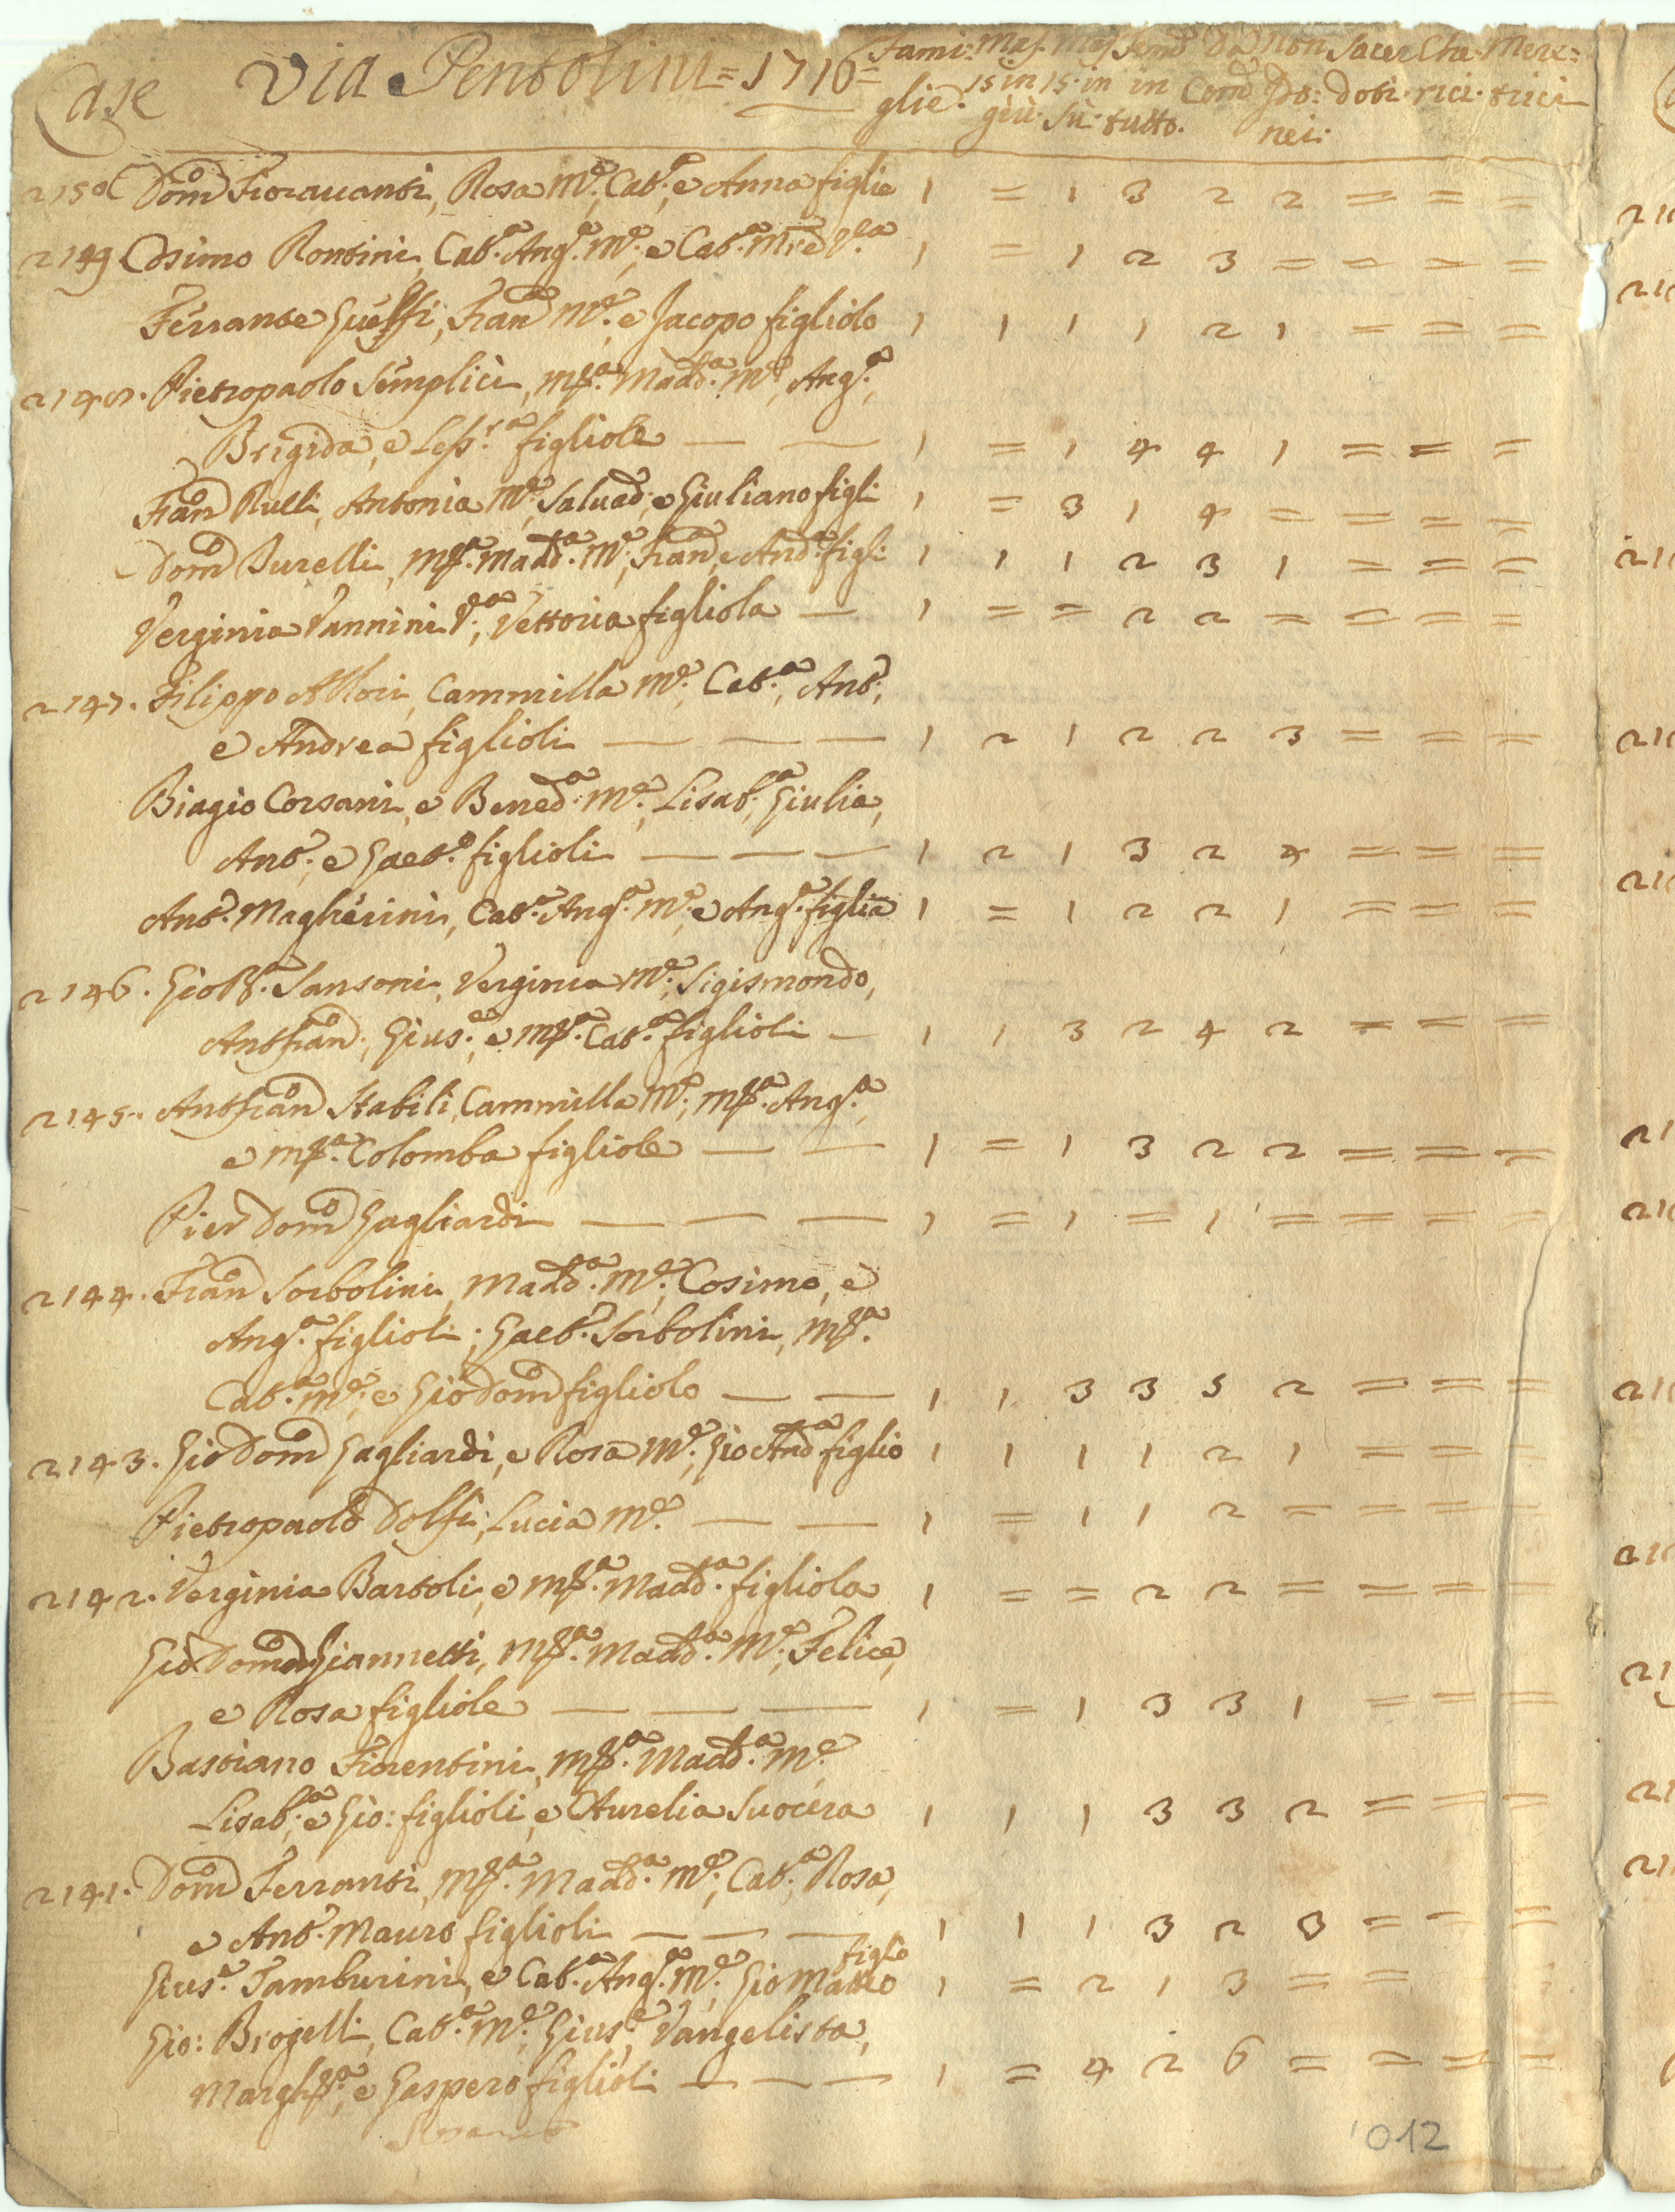 Case Via Pentolini = 1710 = Fami: Mas. Mas. Fem. Da Non Sacer Che. Mere=
glie. 15 in 15. in in Com Po: doti. rici. trici
giù. sù. tutto. nei.
2150 Domco Fioravanti, Rosa Me., Cat.a, e Anna figlie 1 = 1 3 2 2 = = =
2149 Cosimo Rontini, Cat.a Ang.a Me., e Cat.a Mre Va. 1 = 1 2 3 = = = =
Ferrante Guelfi, Franca Me. e Jacopo figliolo 1 1 1 1 2 1 = = =
2148. Pietropaolo Semplici, Ma. Madd.a Me., Ang.a,
Brigida, e Lessra. figliole — — 1 = 1 4 4 1 = = =
Franco Rulli, Antonia Me., Salvad.e, e Giuliano figli 1 = 3 1 4 = = = =
Domco Burelli, Ma. Madd.a Me., Franco, e And.a figli: 1 1 1 2 3 1 = = =
Verginia Vannini Va., Vettoria figliola — 1 = = 2 2 = = = =
2147. Filippo Allori, Cammilla Me., Cat.a, Anto.,
e Andrea figlioli — — — 1 2 1 2 2 3 = = =
Biagio Corsani, e Bened.a Me., Lisab.a, Giulia,
Anto., e Gaeto. figlioli — — — 1 2 1 3 2 4 = = =
Anto. Magherini, Cat.a Ang.a Me., e Ang.a figlia 1 = 1 2 2 1 = = =
2146. Gio Ba. Sansoni, Verginia Me., Sigismondo,
Antfranco, Gius.e, e Ma. Cat.a figlioli — 1 1 3 2 4 2 = = =
2145. Antfranco Stabili, Cammilla Me., Ma. Ang.a,
e Ma. Colomba figliole — — 1 = 1 3 2 2 = = =
Pier Domco Gagliardi — — — 1 = 1 = 1 = = = =
2144. Franco Sorbolini, Madd.a Me., Cosimo, e
Ang.a figlioli; Gaeto. Sorbolini, Ma.
Cat.a Me., e Gio Domco figliolo — — 1 1 3 3 5 2 = = =
2143. Gio Domco Gagliardi, e Rosa Me., Gio And.a figlio 1 1 1 1 2 1 = = =
Pietropaolo Dolfi, Lucia Me. — — 1 = 1 1 2 = = = =
2142. Verginia Bartoli, e Ma. Madd.a figliola 1 = = 2 2 = = = =
Gio Domco Giannetti, Ma. Madd.a Me., Felice,
e Rosa figliole — — — 1 = 1 3 3 1 = = =
Bastiano Fiorentini, Ma. Madd.a Me.
Lisab.a, e Gio: figlioli, e Aurelia Suocera 1 1 1 3 3 2 = = =
2141. Domco Ferranti, Ma. Madd.a Me., Cat.a, Rosa,
e Anto. Mauro figlioli — — — 1 1 1 3 2 3 = = =
Gius.e Tamburini, e Cat.a Ang.a Me., Gio Matteo figlo 1 = 2 1 3 = =
Gio: Brogelli, Cat.a Me., Gius.e, Vangelista,
Marghta., e Gaspero figlioli — — — 1 = 4 2 6 = = = =
012